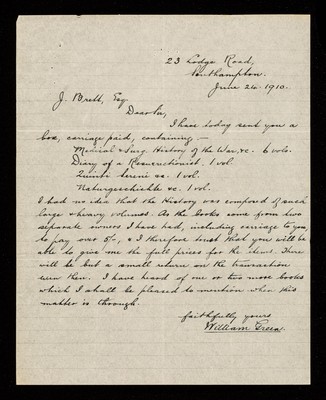 23 Lodge Road,
Southampton.
June 24. 1910.
J. Brett, Esq.
Dear Sir,
I have today sent you a
box, carriage paid, containing —
Medical & Surg. History of the War, &c. 6 vols.
Diary of a Resurrectionist. 1 vol.
Quinti Sereni &c. 1 vol.
Naturgeschichte &c. 1 vol.
I had no idea that the History was composed of such
large & heavy volumes. As the books come from two
separate owners I have had, including carriage to you,
to pay out 5/-, & I therefore trust that you will be
able to give me the full prices for the items. There
will be but a small return on the transaction
even then. I have heard of one or two more books
which I shall be pleased to mention when this
matter is through.
faithfully yours
William Green.